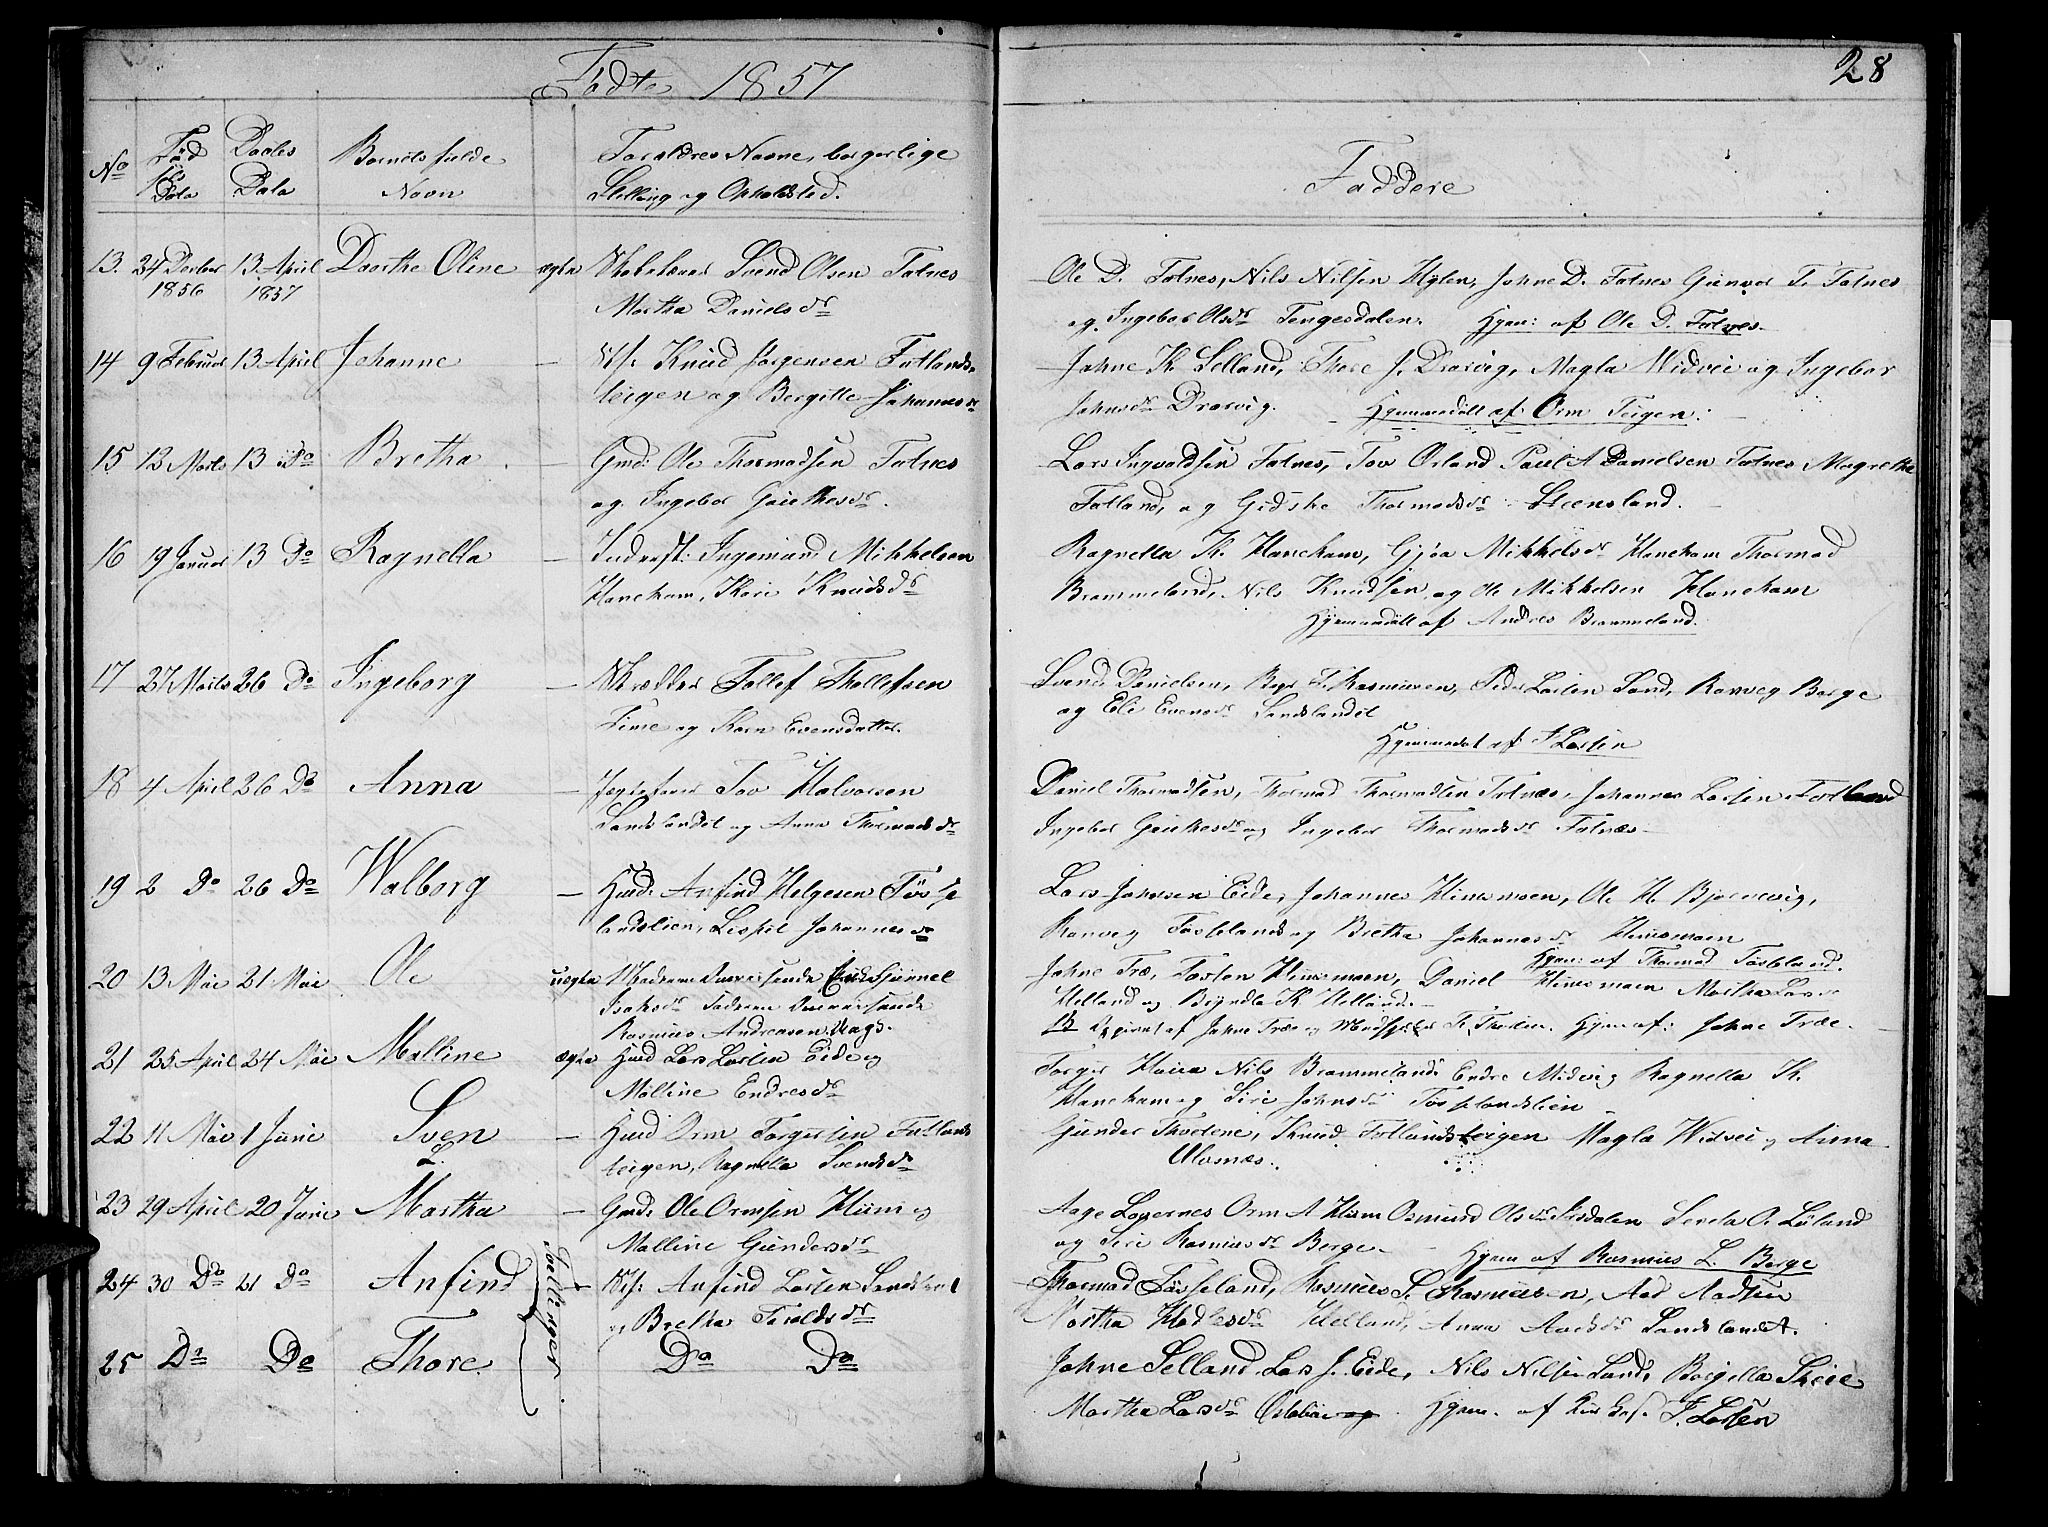 Födte 1857
28
No Fød sels Data Daabs Data Barnets fulde Navn Foraldres Navne, borgerlige Stilling og Opholdsted. Faddere
13. 24 Decber 1856 13 April 1857 Dorthe Oline ægte Svend Olsen Fatnes
Martha Daniels dr
Ole D. Fatnes, Nils Nilsen Hylen, Johne D. Fatnes Gunvor T. Fatnes
og Ingebor Olsdr Tengesdalen. Hjem: af Ole D. Fatnes.
14 9 Februar 13 April Johanne — Knud Jørgensen Fatlands-
teigen og Bergitte Johannesdr
Johne K. Selland, Thore J. Drarvig, Magla Widvei og Ingebor
Johnsdr Drarvig. Hjemmedöbt af Orm Teigen.
15 12 Marts 13 Do Bretha — Gmd: Ole Thormodsen Fatnes
og Ingebor Geirthesdr.
Lars Ingvaldsen Fatnes, Tov Orland Paul A Danielsen Fatnes Magrethe
Fatland, og Gidske Thormodsdr Steensland.
16 19 Januar 13 Do Ragnella — Inderst: Ingemund Mikkelsen
Haneham, Kari Knudsdr
Ragnella K. Haneham, Gjøa Mikkelsdr Haneham Thormod
Brommeland, Nils Knudsen og Ole Mikkelsen Haneham
Hjemmedöbt af Andres Brommeland.
17 27 Marts 26 Do Ingeborg — Tollef Thollefsen
Lime og Karn Evensdatter.
Svend Danielsen, T. Rasmusen, Peder Larsen Sand, Ranveg Berge
og Eli Evensdr Sandslandet
Hjemmedöbt af T Larsen
18 4 April 26 Do Anna — Tov Halvorsen
Sandslandet og Anna Thormodsdr
Daniel Thormodsen, Thormod Thormodsen Fatnæs, Johannes Larsen Fatland
Ingebor Geirthesdr og Ingebor Thormodsdr Fatnæs
19 2 Do 26 Do Walborg — Husd: Anfind Helgesen Tösse
landslien, Lispet Johannesdr
Lars Johnsen Eide, Johannes Hinemoen, Ole H. Bjørnevig,
Ranveg Tösseland og Bretha Johannesdr Hinemoen
Hjem: af Thormod Tösseland.
20 13 Mai 21 Mai Ole uægte Moderen Gunnel
Isaksdr Faderen
Rasmus Andreasen Vaage.
Johne Træ, Torsten Hinemoen, Daniel Hinemoen Martha Larsdr
Helland og Bryndla K Helland.
af Johne Træ og T. Thorsen. Hjem af: Johne Træe.
21 25 April 24 Mai Malline ægte Husd Lars Larsen Eide og
Maline Endresdr
Torger Haiea Nils Brommeland Endre Midvig Ragnella K.
Haneham og Siri Johnsdr Tösselandslien
22 11 Mai 1 Juni Sven — Husd Orm Torgersen Fatlands
teigen, Ragnella Svendsdr
Gunder Thorlene, Knud Fatlandsteigen Magla Widvei og Anna
Alvsnæs.
23 29 April 20 Juni Martha — Gmd: Ole Ormsen Hiim og
Malline Gundersdr
Aage Lovernes Orm A Hiim Osmund Olsdr Aarsdalen Serda O. Løland
og Siri Rasmusdr Berge. Hjem af Rasmus L. Berge
24 30 Do 21 Do Anfind Tvellinger — Anfind Larsen Sandsland
og Bretha Taraldsdr
Thormod Tösseland, Rasmus S. Rasmusen, Aad Aadsen
Martha Hadlesdr Helland, Anna Aadsdr Sandslandet.
25 Do Do Thore. Do Do
Johne Selland Lars J. Eide, Nils Nilsen Sand, Borgella Skeie
Martha Larsdr Østebøe og Hjem. af T. Larsen